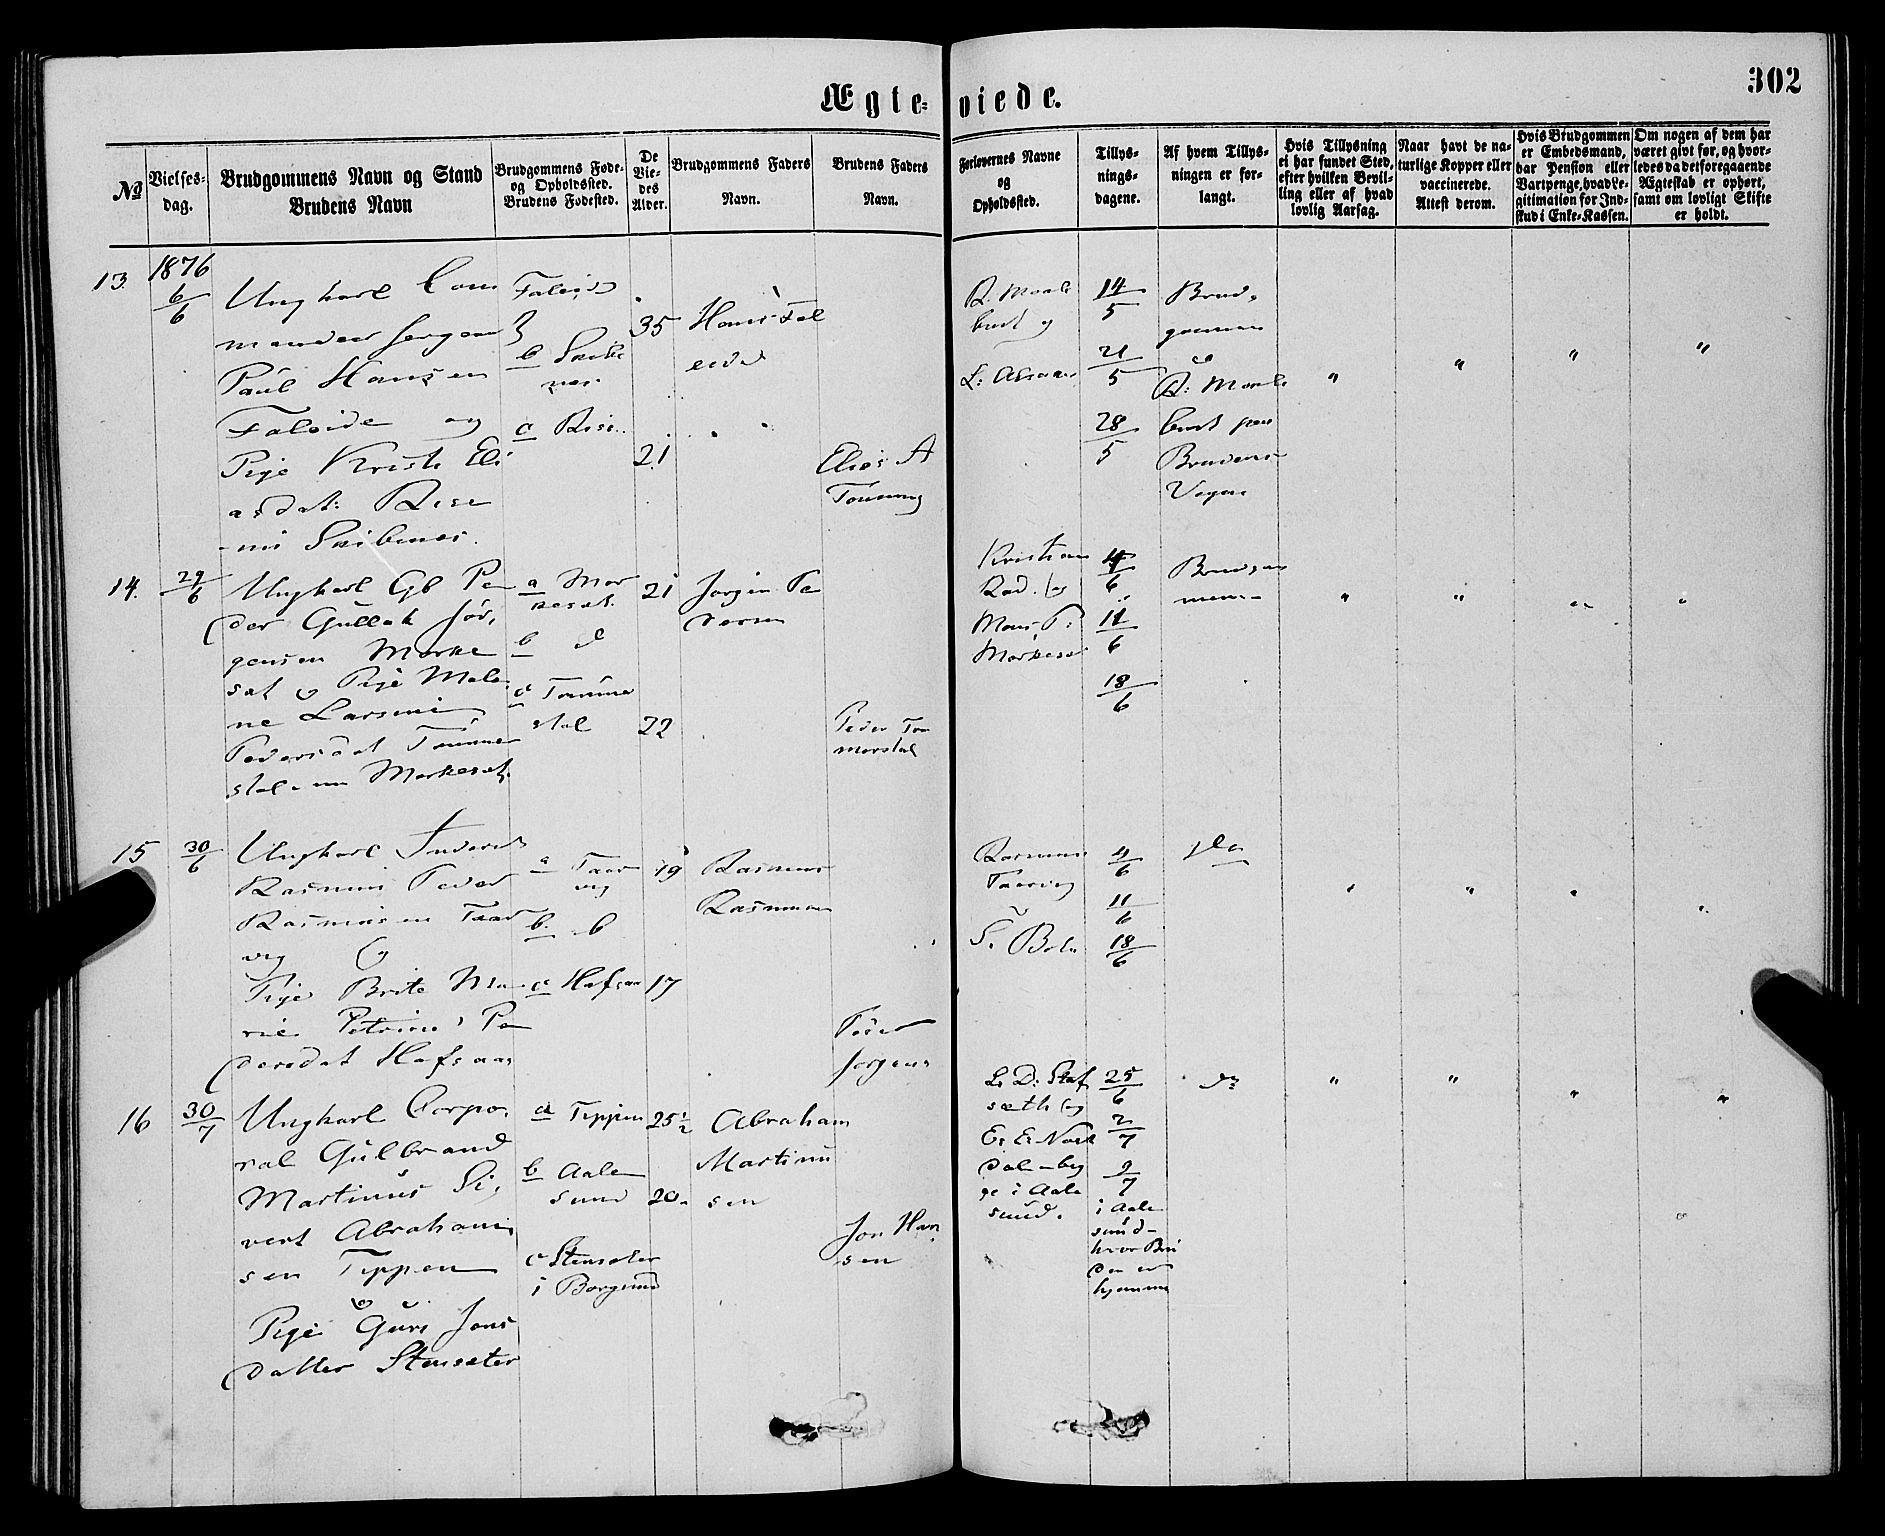 302
Ægte-viede.
No
Vielses-
dag.
Brudgommens Navn og Stand
Brudens Navn
Brudgommens Føde-
og Opholdssted.
Brudens Fødested.
De
Vie-
des
Alder.
Brudgommens Faders
Navn.
Brudens Faders
Navn.
Forlovernes Navne
og
Opholdssted.
Tillys-
nings-
dagene.
Af hvem Tillys-
ningen er for-
langt.
Hvis Tillysning
ei har fundet Sted,
efter hvilken Bevil-
ling eller af hvad
lovlig Aarsag.
Naar havt de na-
turlige Kopper eller
vaccinerede.
Attest derom.
Hvis Brudgommen
er Embedsmand,
har Pension eller
Vartpenge, hvad Le-
gitimation for Ind-
skud i Enke-Kassen.
Om nogen af dem har
været givt før, og hvor-
ledes da det foregaaende
Ægteskab er ophørt,
samt om lovligt Skifte
er holdt.
13.
1876
6/6
Ungkarl Com
mandeer Sergean
Paul Hansen
Faleide og
Pige Eli
asdat: Rise
Faleide
b
a Rise
35
21
Hans Fal
eide
Elias A
L:
14/5
21/5
28/5
Brud-
gommen
Brudens
Vegne
14.
29/6
Ungkarl Gb Pe
der Gullak Jør,
gensen Morke
sat og Pige Male
ne Larsine
Pedersdat Tømmer
stol
a Mor
kesat.
b d
c Tømme
stol
21
22
Jørgen Pe
dersen
Peder Tøm
merstol
Kristian
Rød. og
Mons P:
4/6
11/6
18/6
Brudgom
men
15
30/6
Ungkarl
Rasmus Peder
Rasmusen Taar
vig og
Pige Brite Ma
rie Petrine Pe
dersdat Hafsaas
a Taar
vig
b. b
c Hafsaa
19
17
Rasmus
Rasmusen
Peder
Jørgens
Rasmus
Taarvig
4/6
11/6
18/6
16
30/7
Ungkarl Corpo,
ral Gulbrand
Martinus Si,
vert Abraham
sen Tippen
og
Pige Guri Jons
datter Stensæter
a Tippen
b Aale
sund
c Stensæter
i Borgund
25½
20
Abraham
Martinu
sen
Jon Han
sen
sæth og
i Aale
sund.
25/6
2/7
9/7
i Aale
sund
hvor Bru
den er
hjemme